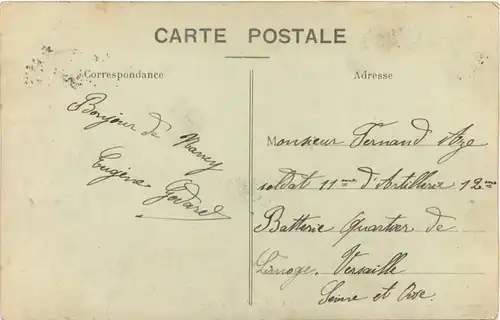 CARTE POSTALE
Correspondance
Bonjour de Nancy
Eugène Godard
Adresse
Monsieur Fernand Aze
soldat 11me d'Artillerie 12me
Batterie Quartier de
Limoge. Versaille
Seine et Oise